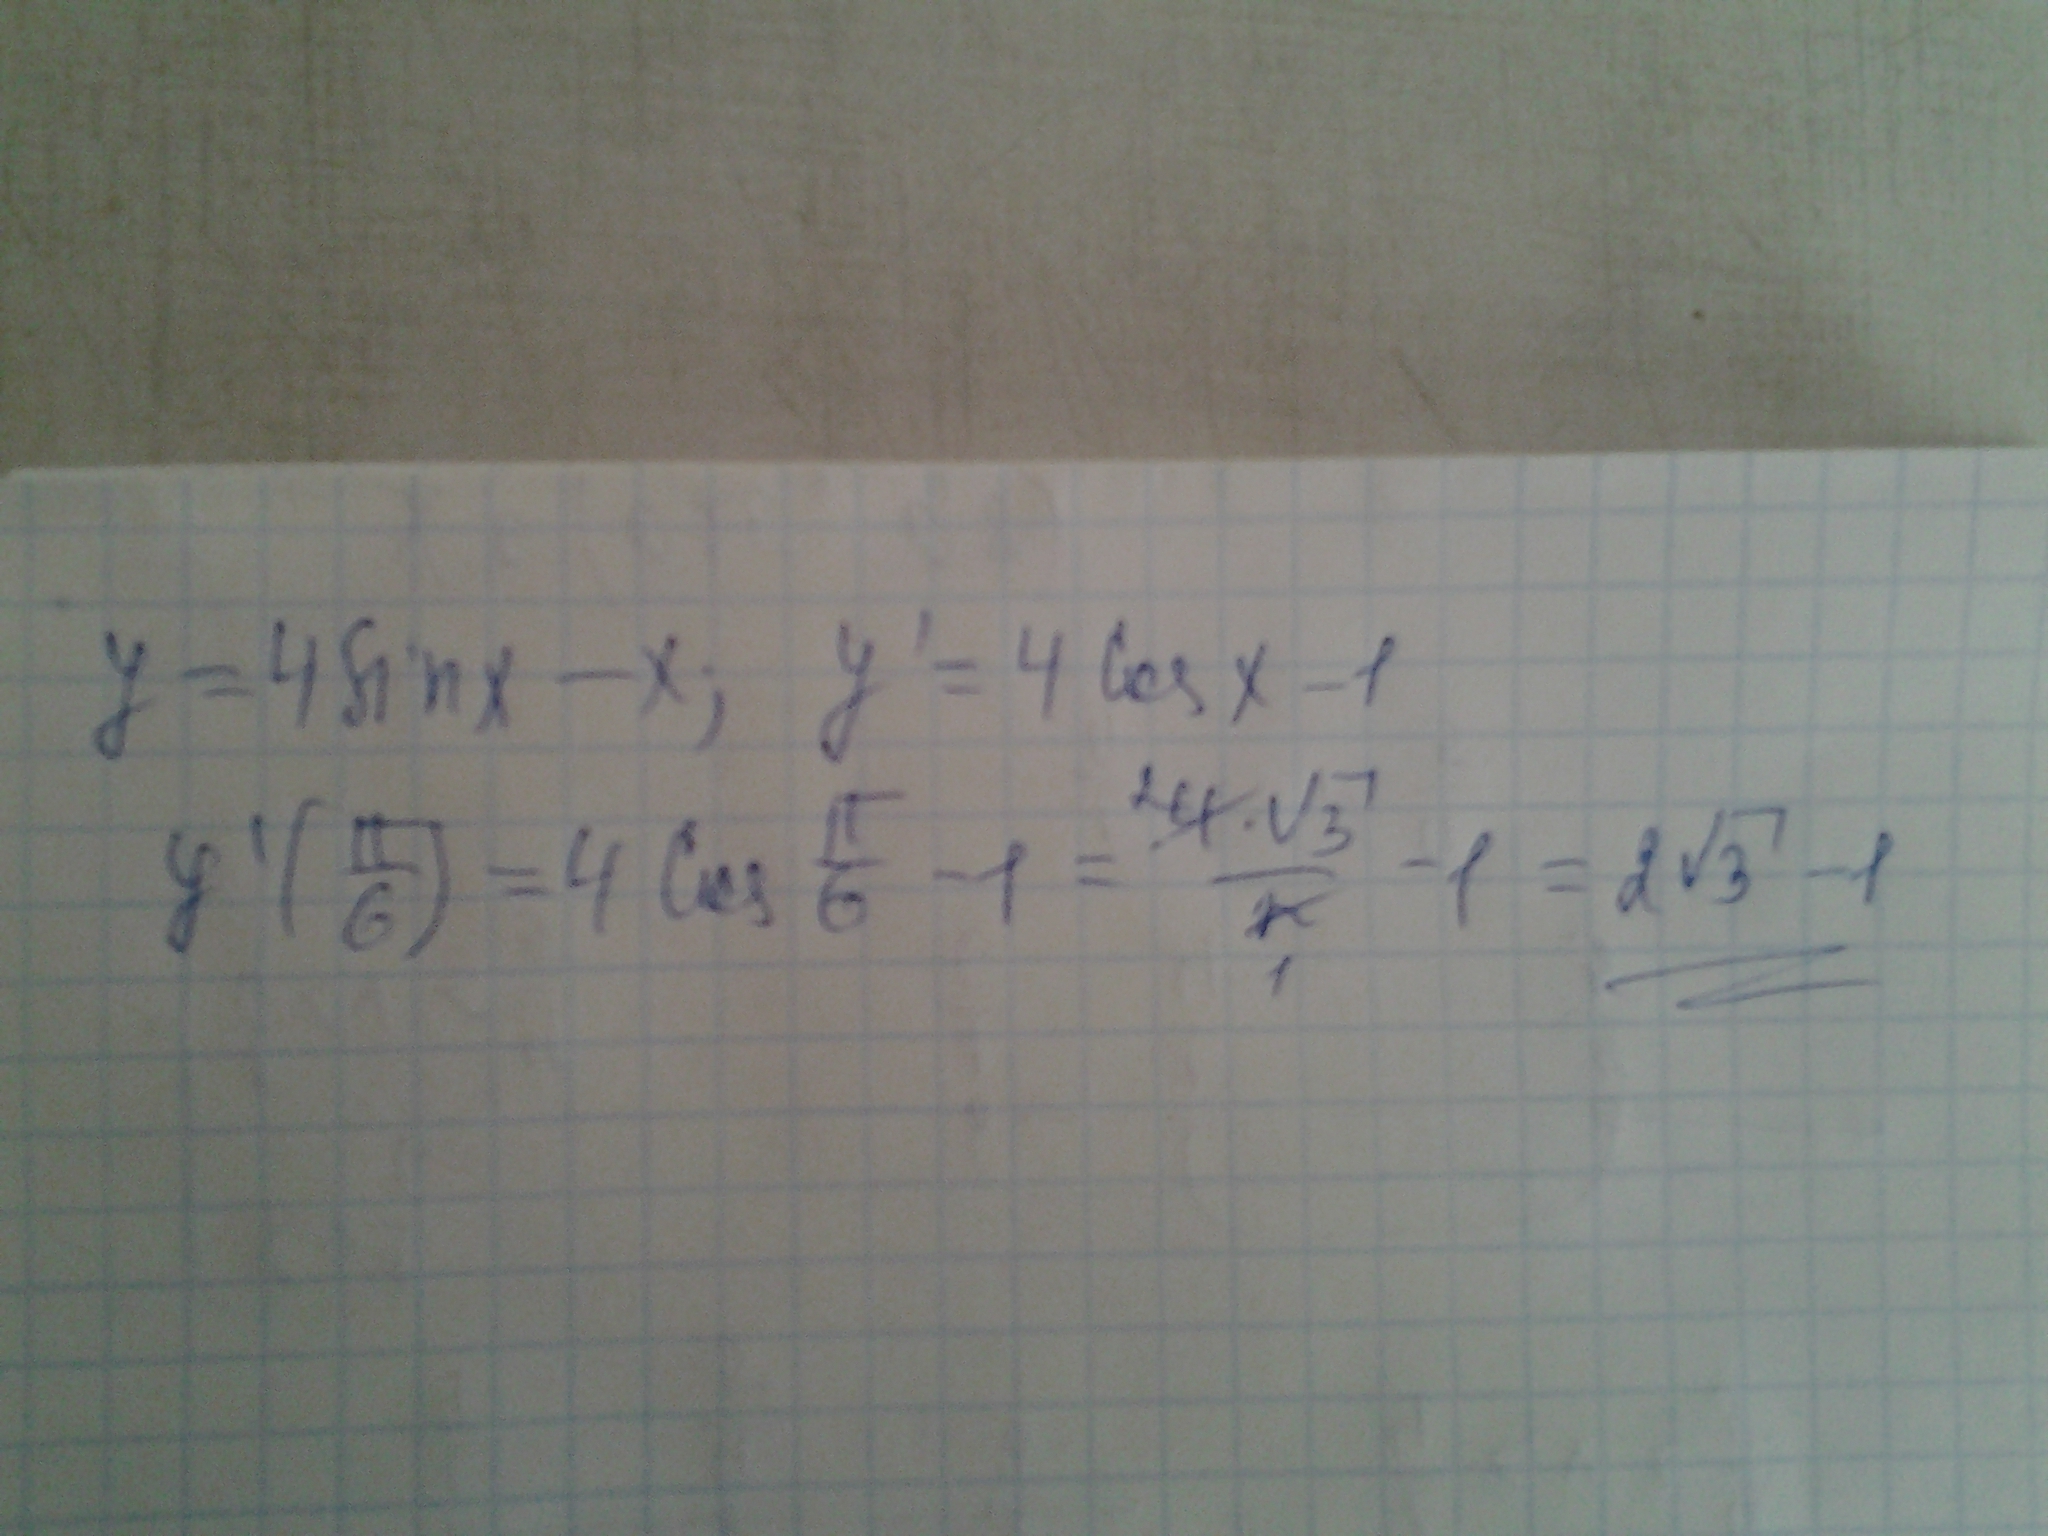 y = 4 sin x - x; y' = 4 cos x - 1
y'(π/6) = 4 cos π/6 - 1 = 4·√3/2 - 1 = 2√3 - 1